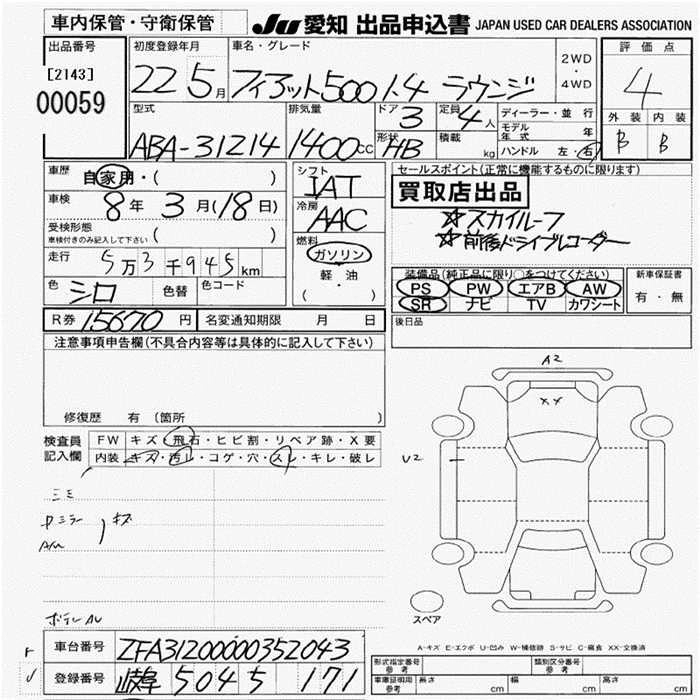 車内保管・守衛保管
JU 愛知 出品申込書 JAPAN USED CAR DEALERS ASSOCIATION
出品番号
[2143]
00059
初度登録年月
22 5月
車名・グレード
フィアット500 1.4 ラウンジ
2WD
・
4WD
評価点
4
外装 内装
B B
型式
ABA-31214
排気量
1400cc
ドア
3
形状
HB
定員
4人
積載
kg
ディーラー・並行
モデル年式 年
ハンドル 左・右
車歴
自家用・( )
車検
8年 3月(18日)
受検形態
車検付きのみ記入して下さい ( )
走行
5万3千945km
色
シロ
色替
色コード
シフト
IAT
冷房
AAC
燃料
ガソリン
・
軽・油
( ・ )
セールスポイント(正常に機能するものに限ります)
買取店出品
☆スカイルーフ
☆前後ドライブレコーダー
装備品(純正品に限り○をつけてください)
PS PW エアB AW
SR ナビ TV カワシート
新車保証書
有・無
後日品
R券 15670円
名変通知期限 月 日
注意事項申告欄(不具合内容等は具体的に記入して下さい)
修復歴 有 (箇所 )
検査員
記入欄
FW キズ・飛石・ヒビ割・リペア跡・X要
内装 キズ・汚レ・コゲ・穴・スレ・キレ・破レ
ミミ
ミラー
キズ
A/W
ボデーAU
A2
XX
U2
スペア
A-キズ E-エクボ U-凹み W-補修跡 S-サビ C-腐食 XX-交換済
車台番号
ZFA31200000352043
登録番号
岐阜 504 5 171
形式指定番号
参考
類別区分番号
参考
車庫証明用
参考
長さ cm 幅 cm 高さ cm